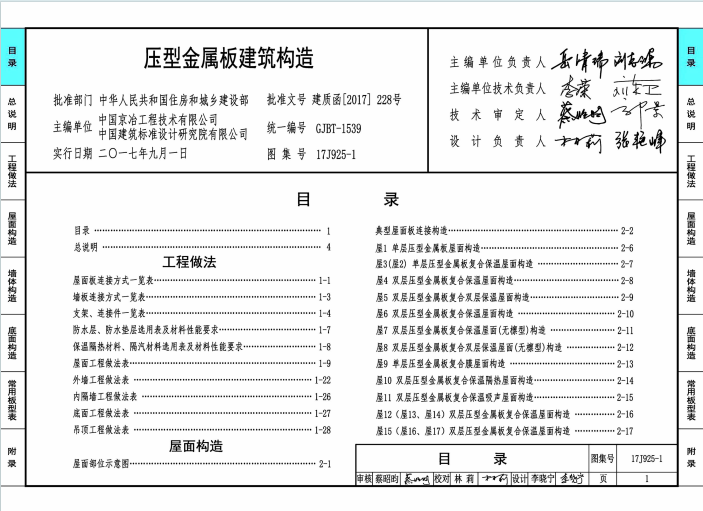 压型金属板建筑构造
批准部门 中华人民共和国住房和城乡建设部 批准文号 建质函[2017] 228号
主编单位 中国京冶工程技术有限公司
中国建筑标准设计研究院有限公司
统一编号 GJBT-1539
实行日期 二〇一七年九月一日 图集号 17J925-1
主编单位负责人
主编单位技术负责人
技术审定人
设计负责人
目录
总说明
工程做法
屋面构造
墙体构造
底面构造
常用板型表
附录
目 录
目录 1
总说明 4
工程做法
屋面板连接方式一览表 1-1
墙板连接方式一览表 1-3
支架、连接件一览表 1-4
防水层、防水垫层选用表及材料性能要求 1-7
保温隔热材料、隔汽材料选用表及材料性能要求 1-8
屋面工程做法表 1-9
外墙工程做法表 1-22
内隔墙工程做法表 1-26
底面工程做法表 1-27
吊顶工程做法表 1-28
屋面构造
屋面部位示意图 2-1
典型屋面板连接构造 2-2
屋1 单层压型金属板屋面构造 2-6
屋3(屋2) 单层压型金属板复合保温屋面构造 2-7
屋4 双层压型金属板复合保温屋面构造 2-8
屋5 双层压型金属板复合双层保温屋面构造 2-9
屋6 双层压型金属板复合保温屋面构造 2-10
屋7 双层压型金属板复合保温屋面(无檩型)构造 2-11
屋8 双层压型金属板复合双层保温屋面(无檩型)构造 2-12
屋9 单层压型金属板复合膜屋面构造 2-13
屋10 双层压型金属板复合保温隔热屋面构造 2-14
屋11 双层压型金属板复合保温吸声屋面构造 2-15
屋12（屋13、屋14）双层压型金属板复合保温屋面构造 2-16
屋15（屋16、屋17）双层压型金属板复合保温屋面构造 2-17
目 录 图集号 17J925-1
审核 蔡昭昀 校对 林莉 设计 李晓宁 页 1
目录
总说明
工程做法
屋面构造
墙体构造
底面构造
常用板型表
附录